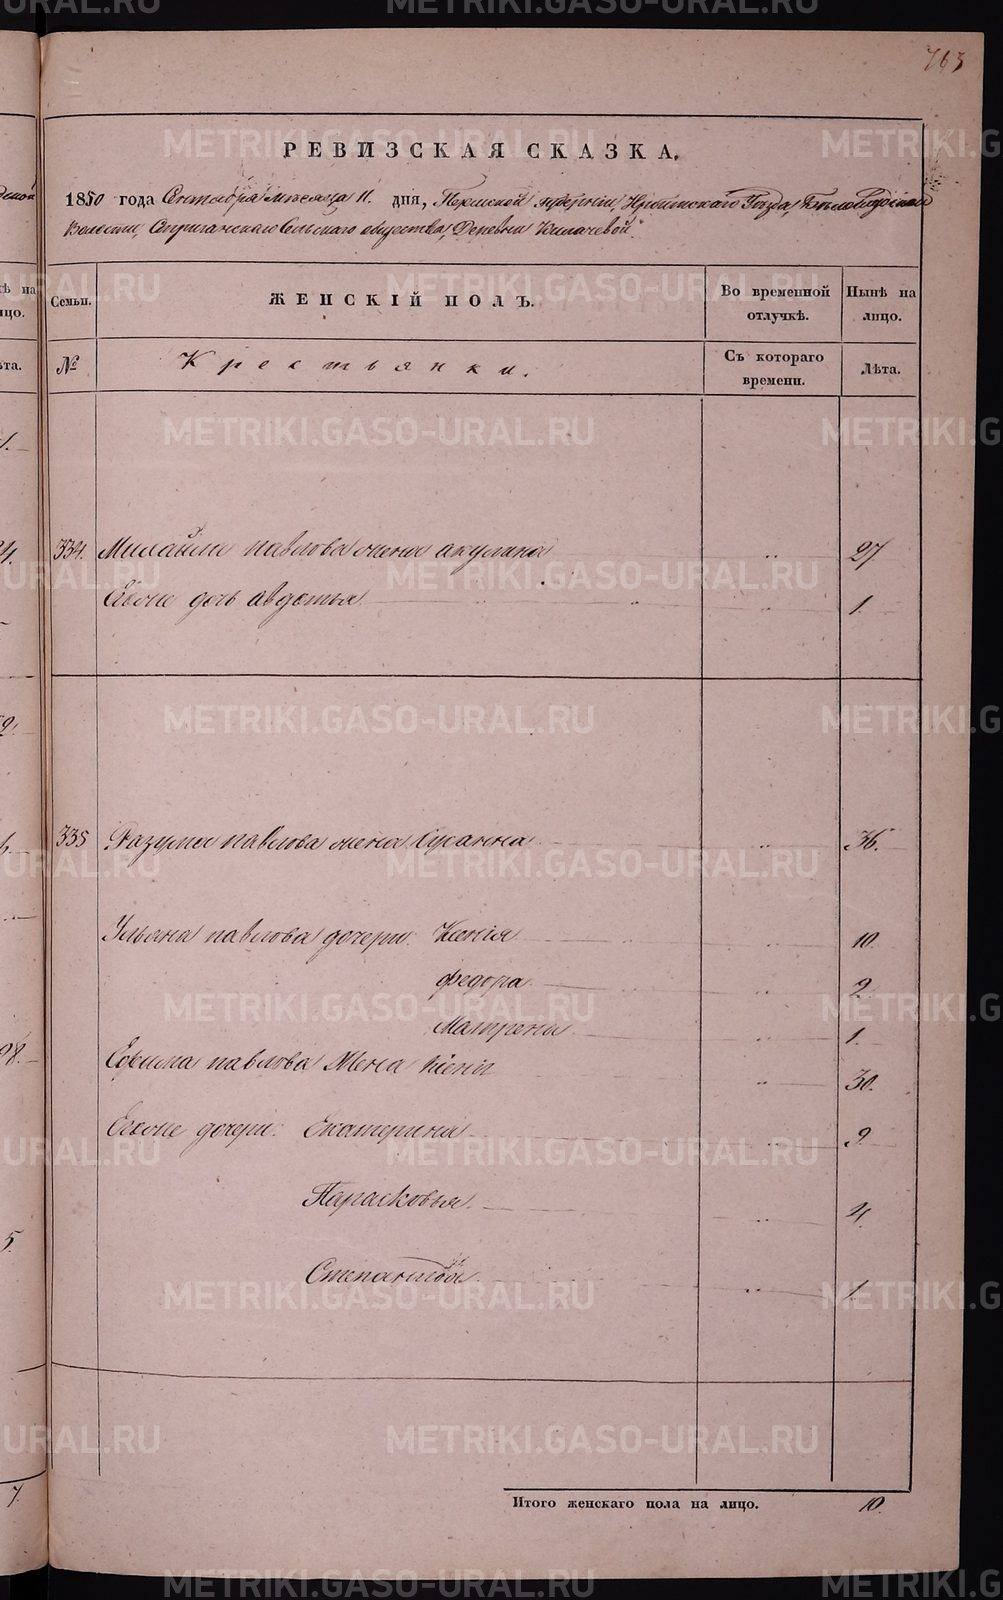 763
РЕВИЗСКАЯ СКАЗКА.
1850 года Сентября месяца 11. дня, Пермской губерніи, Ирбитскаго Уезда, Белослудской
Волости, Стриганскаго Сельскаго общества, Деревни Килачевой
Семьи. ЖЕНСКІЙ ПОЛЪ. Во временной отлучкѣ. Нынѣ на лицо.
№ Крестьянки. Съ котораго времени. Лѣта.
334. павлова жена акулина " 27
Евоне дочь авдотья " 1.
335 Разума павлова жена Сусанна " 36.
Ульяна павлова дочери: Ксенія " 10.
федора " 2
Матрена " 1.
Ефима павлова Жена " 30.
Евоне дочери: Екатерина " 9
Парасковья " 4.
Степанида " 1.
Итого женскаго пола на лицо. 10.
METRIKI.GASO-URAL.RU